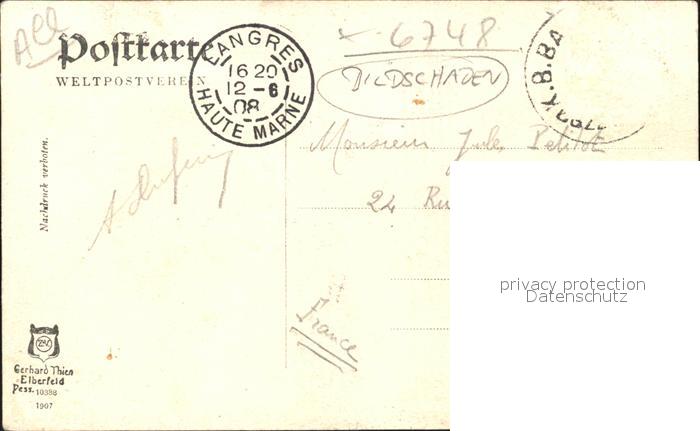 All
Postkarte
WELTPOSTVEREIN
LANGRES
16 20
12 - 6
08
HAUTE MARNE
6748
BILDSCHADEN
K.B.BA
Monsieur Jules Petitot
24 Ru
France
Nachdruck verboten.
privacy protection
Datenschutz
Gerhard Thien
Elberfeld
Dess. 10388
1907